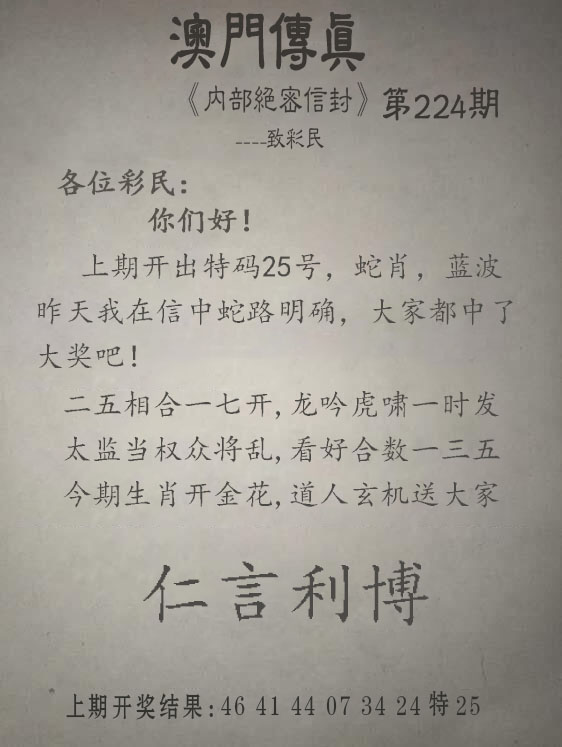 澳門傳真
《内部絕密信封》第224期
----致彩民
各位彩民:
你们好!
上期开出特码25号,蛇肖,蓝波
昨天我在信中蛇路明确,大家都中了
大奖吧!
二五相合一七开,龙吟虎啸一时发
太监当权众将乱,看好合数一三五
今期生肖开金花,道人玄机送大家
仁言利博
上期开奖结果:46 41 44 07 34 24 特 25